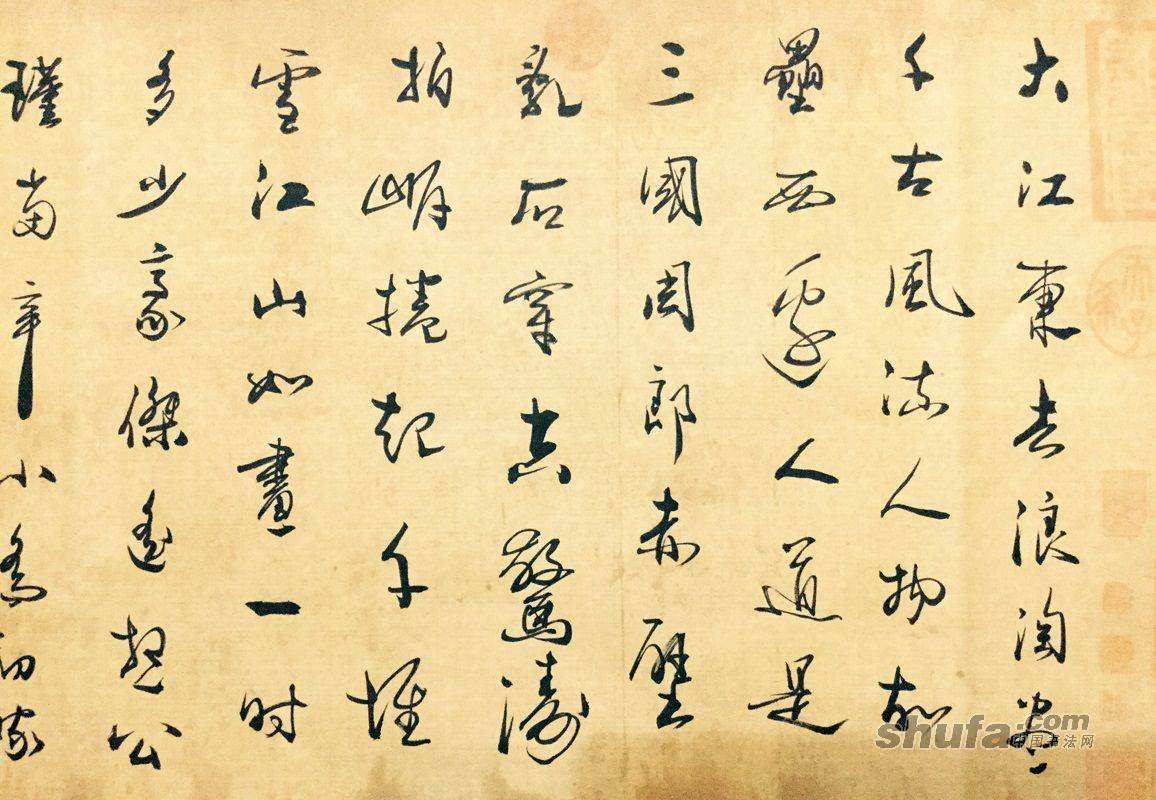 大江東去浪淘盡
千古風流人物故
壘西邊人道是
三國周郎赤壁
亂石穿空驚濤
拍岸捲起千堆
雪江山如畫一时
多少豪傑遙想公
瑾當年小喬初嫁
shufa.com
中国书法网